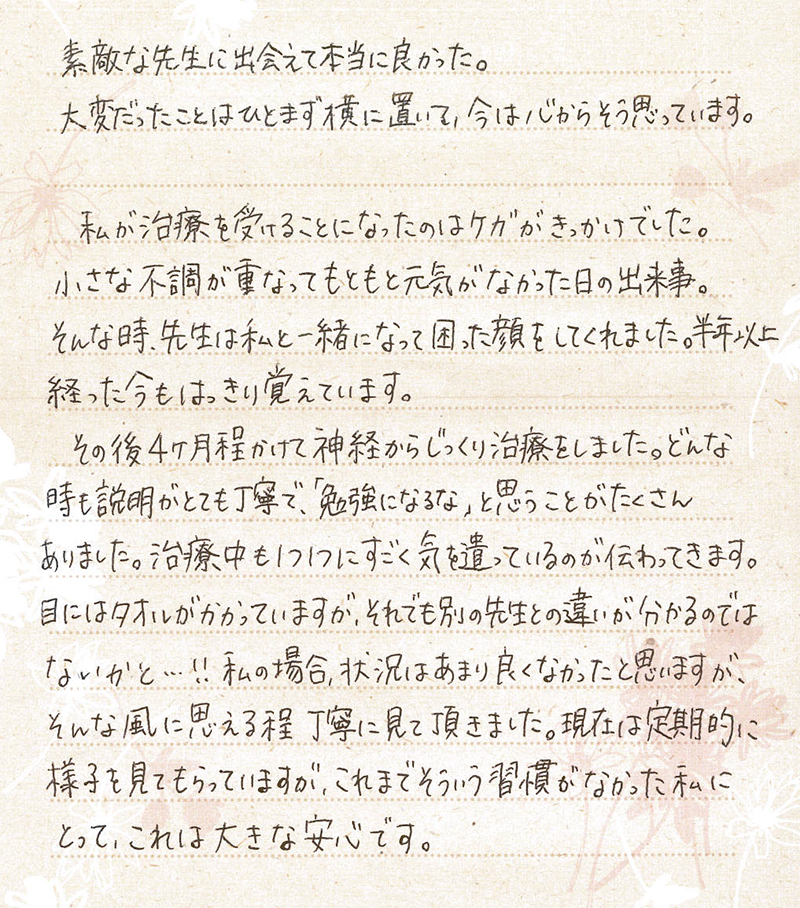 素敵な先生に出会えて本当に良かった。
大変だったことはひとまず横に置いて、今は心からそう思っています。
私が治療を受けることになったのはケガがきっかけでした。
小さな不調が重なってもともと元気がなかった日の出来事。
そんな時、先生は私と一緒になって困った顔をしてくれました。半年以上
経った今もはっきり覚えています。
その後4ヶ月程かけて神経からじっくり治療をしました。どんな
時も説明がとても丁寧で、「勉強になるな」と思うことがたくさん
ありました。治療中も1つ1つにすごく気を遣っているのが伝わってきます。
目にはタオルがかかっていますが、それでも別の先生との違いが分かるのでは
ないかと…!! 私の場合、状況はあまり良くなかったと思いますが、
そんな風に思える程丁寧に見て頂きました。現在は定期的に
様子を見てもらっていますが、これまでそういう習慣がなかった私に
とって、これは大きな安心です。